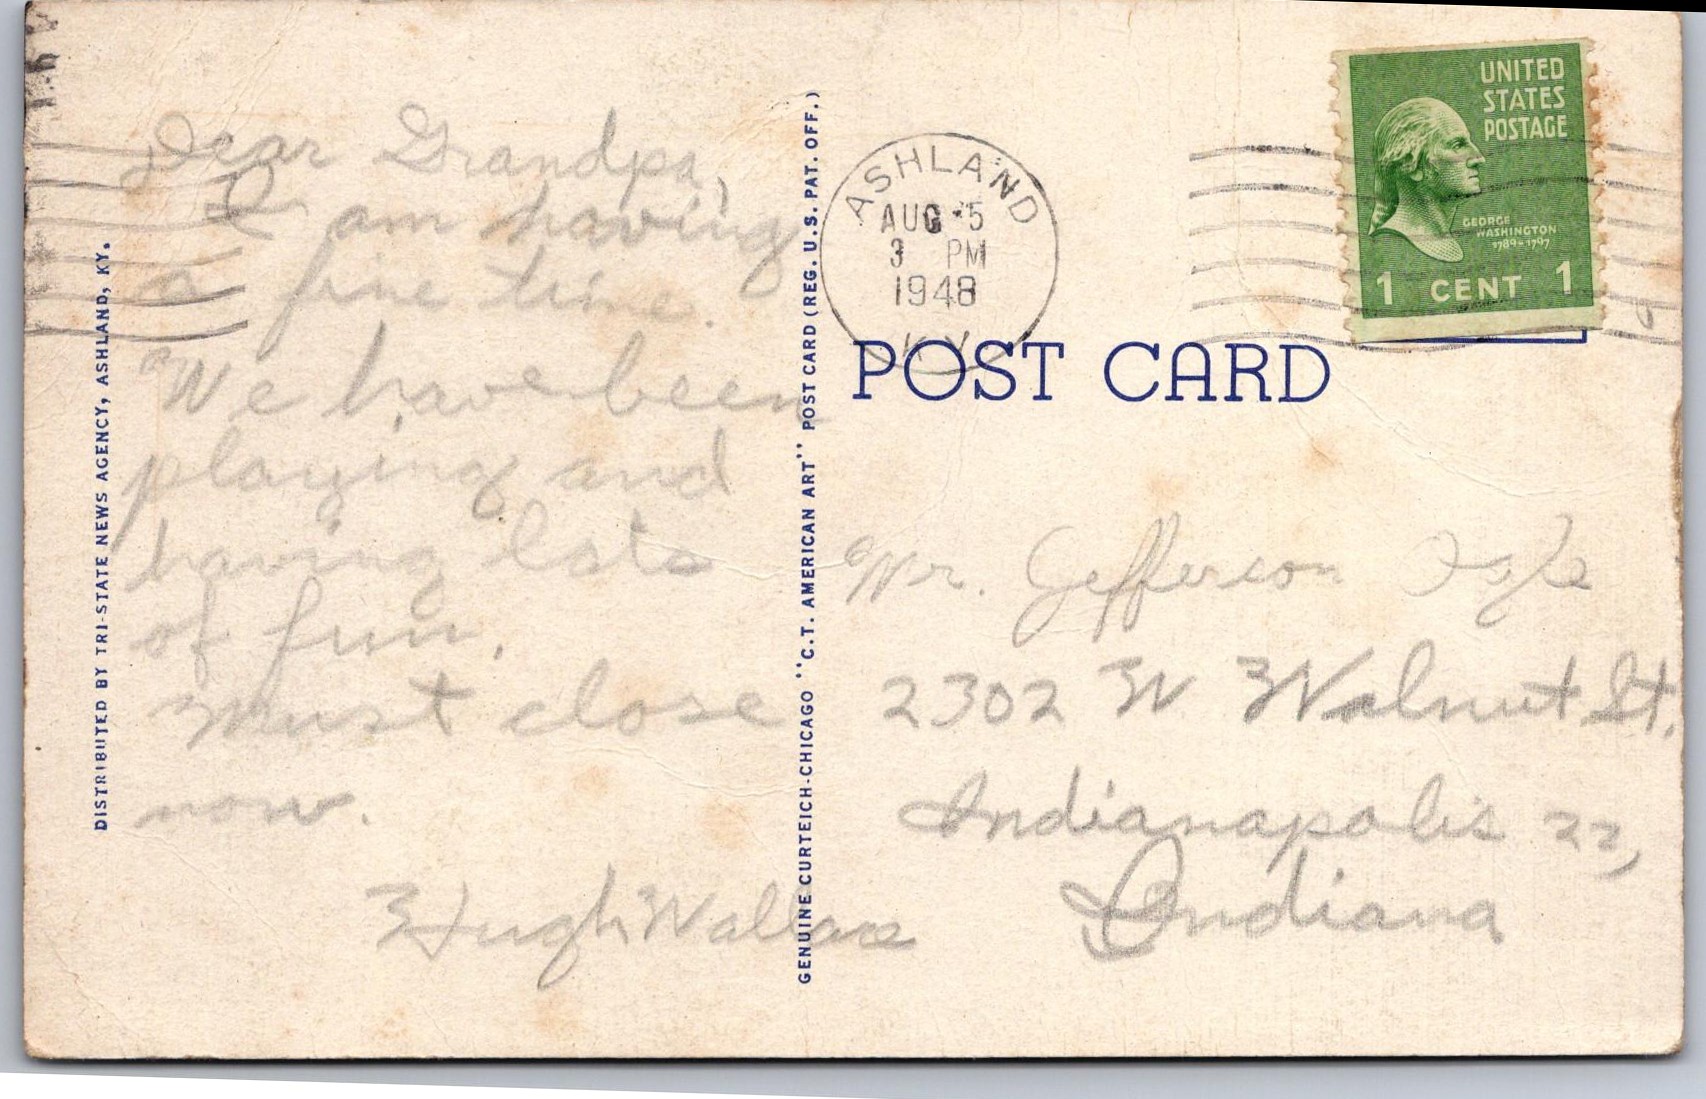 Dear Grandpa,
I am having
a fine time.
We have been
playing and
having lots
of fun.
Must close
now.
Hugh Wallace
DISTRIBUTED BY TRI-STATE NEWS AGENCY, ASHLAND, KY.
GENUINE CURTEICH-CHICAGO "C.T. AMERICAN ART" POST CARD (REG. U.S. PAT. OFF.)
ASHLAND
AUG 5
3 PM
1948
KY
UNITED
STATES
POSTAGE
GEORGE
WASHINGTON
1789-1797
1 CENT 1
POST CARD
Mr. Jefferson
2302 W Walnut St.
Indianapolis 22,
Indiana